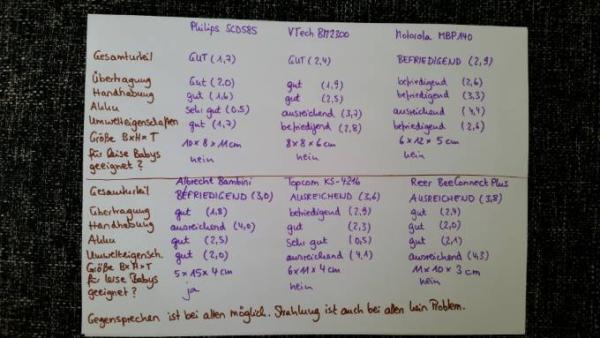 Philips SCD585 VTech BM2300 Motorola MBP140
Gesamturteil GUT (1,7) GUT (2,4) BEFRIEDIGEND (2,9)
Übertragung Gut (2,0) gut (1,9) befriedigend (2,6)
Handhabung gut (1,6) gut (2,5) befriedigend (3,3)
Akku sehr gut (0,5) ausreichend (3,7) ausreichend (4,4)
Umwelteigenschaften gut (1,7) befriedigend (2,8) befriedigend (2,6)
Größe BxHxT 10x8x11cm 8x8x6cm 6x12x5cm
für leise Babys nein nein nein
geeignet?
Albrecht Bambini Topcom KS-4216 Reer BeeConnect Plus
Gesamturteil BEFRIEDIGEND (3,0) AUSREICHEND (3,6) AUSREICHEND (3,8)
Übertragung gut (1,8) befriedigend (2,9) gut (2,4)
Handhabung ausreichend (4,0) gut (2,3) gut (2,0)
Akku gut (2,5) sehr gut (0,5) gut (2,1)
Umwelteigensch. gut (2,0) ausreichend (4,1) ausreichend (4,3)
Größe BxHxT 5x15x4cm 6x11x4cm 11x10x3cm
für leise Babys ja nein nein
geeignet?
Gegensprechen ist bei allen möglich. Strahlung ist auch bei allen kein Problem.